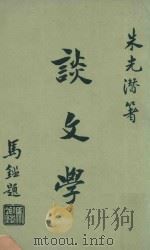 朱光潛著
談文學
馬鑑題